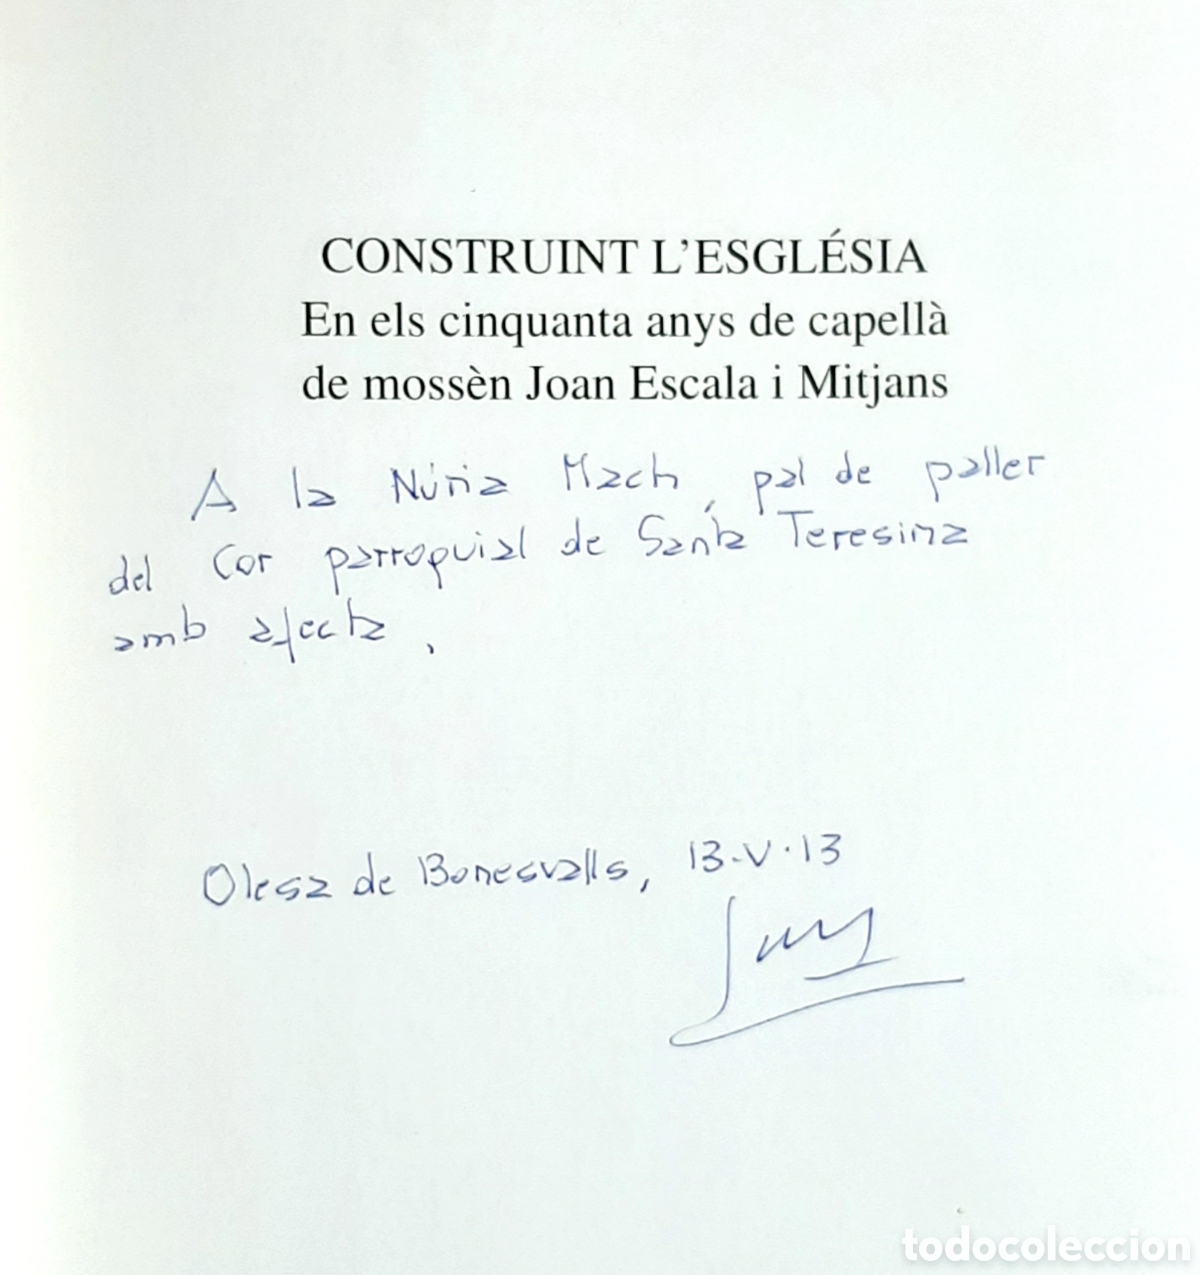 CONSTRUINT L'ESGLÉSIA
En els cinquanta anys de capellà
de mossèn Joan Escala i Mitjans
A la Núria Mach, pal de paller
del Cor parroquial de Santa Teresina
amb afecte,
Olesa de Bonesvalls, 13-V-13
todocoleccion